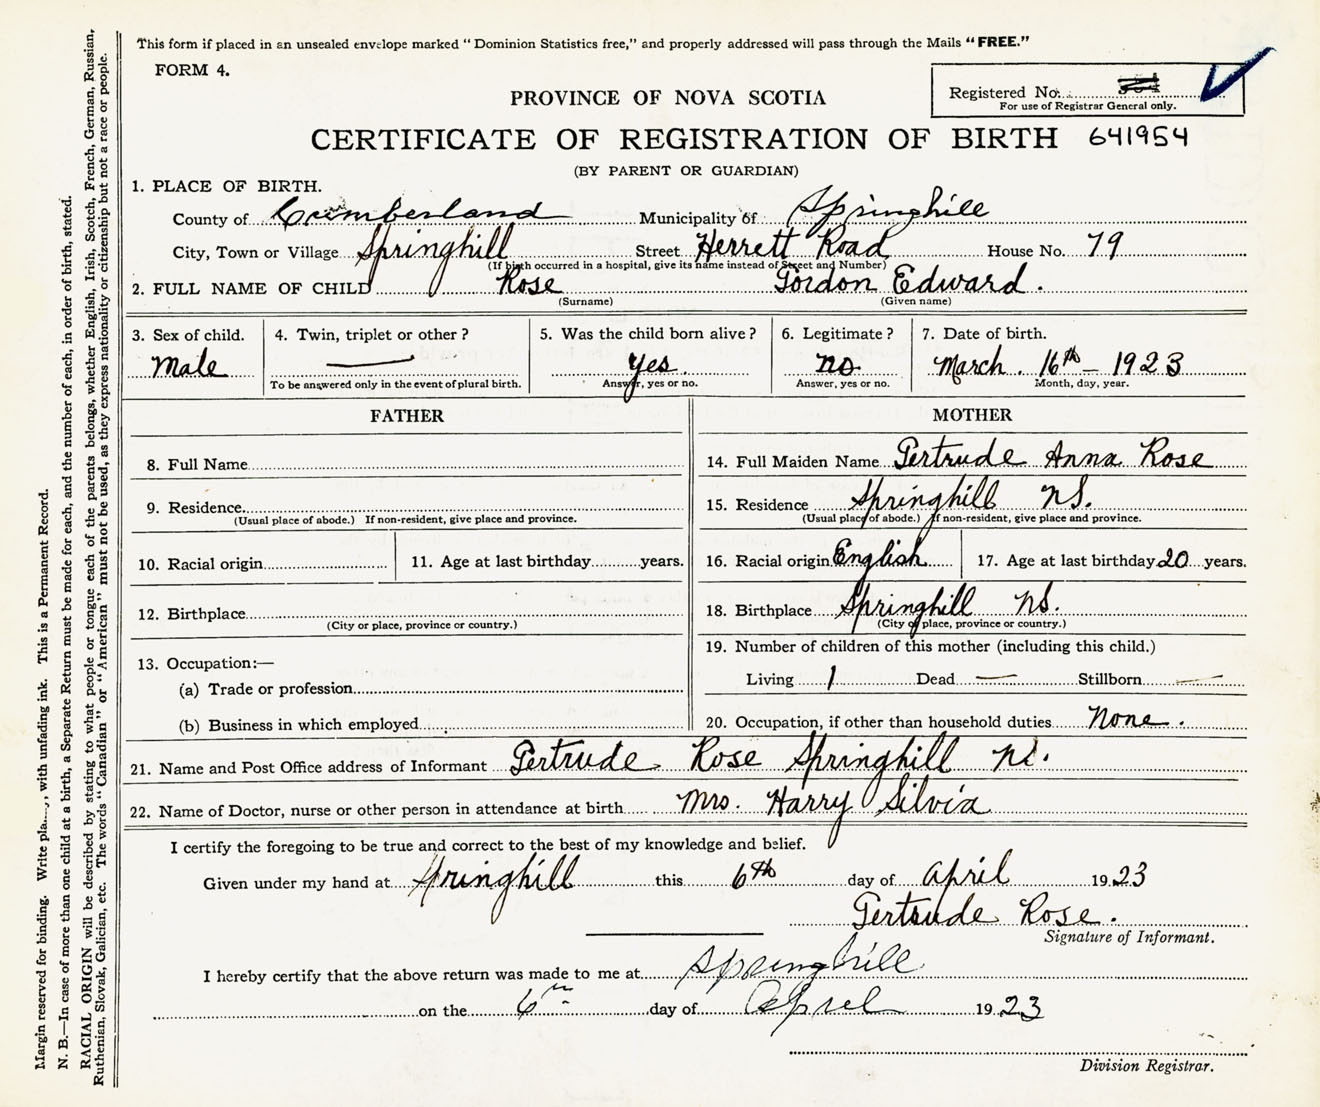 This form if placed in an unsealed envelope marked “ Dominion Statistics free,” and properly addressed will pass through the Mails “ FREE.”
FORM 4.
Registered No.
For use of Registrar General only.
PROVINCE OF NOVA SCOTIA
CERTIFICATE OF REGISTRATION OF BIRTH 641954
(BY PARENT OR GUARDIAN)
1. PLACE OF BIRTH.
County of Cumberland Municipality of Springhill
City, Town or Village Springhill Street Herrett Road House No. 79
(If birth occurred in a hospital, give its name instead of Street and Number)
2. FULL NAME OF CHILD Rose Gordon Edward.
(Surname) (Given name)
3. Sex of child. 4. Twin, triplet or other ? 5. Was the child born alive ? 6. Legitimate ? 7. Date of birth.
Male — Yes no. March. 16th – 1923
To be answered only in the event of plural birth. Answer, yes or no. Answer, yes or no. Month, day, year.
FATHER
8. Full Name
9. Residence
(Usual place of abode.) If non-resident, give place and province.
10. Racial origin 11. Age at last birthday years.
12. Birthplace
(City or place, province or country.)
13. Occupation:—
(a) Trade or profession
(b) Business in which employed
MOTHER
14. Full Maiden Name Gertrude Anna Rose
15. Residence Springhill NS.
(Usual place of abode.) If non-resident, give place and province.
16. Racial origin English 17. Age at last birthday 20 years.
18. Birthplace Springhill NS.
(City or place, province or country.)
19. Number of children of this mother (including this child.)
Living 1 Dead — Stillborn —
20. Occupation, if other than household duties None.
21. Name and Post Office address of Informant Gertrude Rose Springhill NS.
22. Name of Doctor, nurse or other person in attendance at birth Mrs. Harry Silvia
I certify the foregoing to be true and correct to the best of my knowledge and belief.
Given under my hand at Springhill this 6th day of April 1923
Gertrude Rose.
Signature of Informant.
I hereby certify that the above return was made to me at Springhill
on the 6th day of April 1923
Division Registrar.
Margin reserved for binding. Write , with unfading ink. This is a Permanent Record.
N. B.—In case of more than one child at a birth, a Separate Return must be made for each, and the number of each, in order of birth, stated.
RACIAL ORIGIN will be described by stating to what people or tongue each of the parents belongs, whether English, Irish, Scotch, French, German, Russian,
Ruthenian, Slovak, Galician, etc. The words “ Canadian ” or “ American ” must not be used, as they express nationality or citizenship but not a race or people.